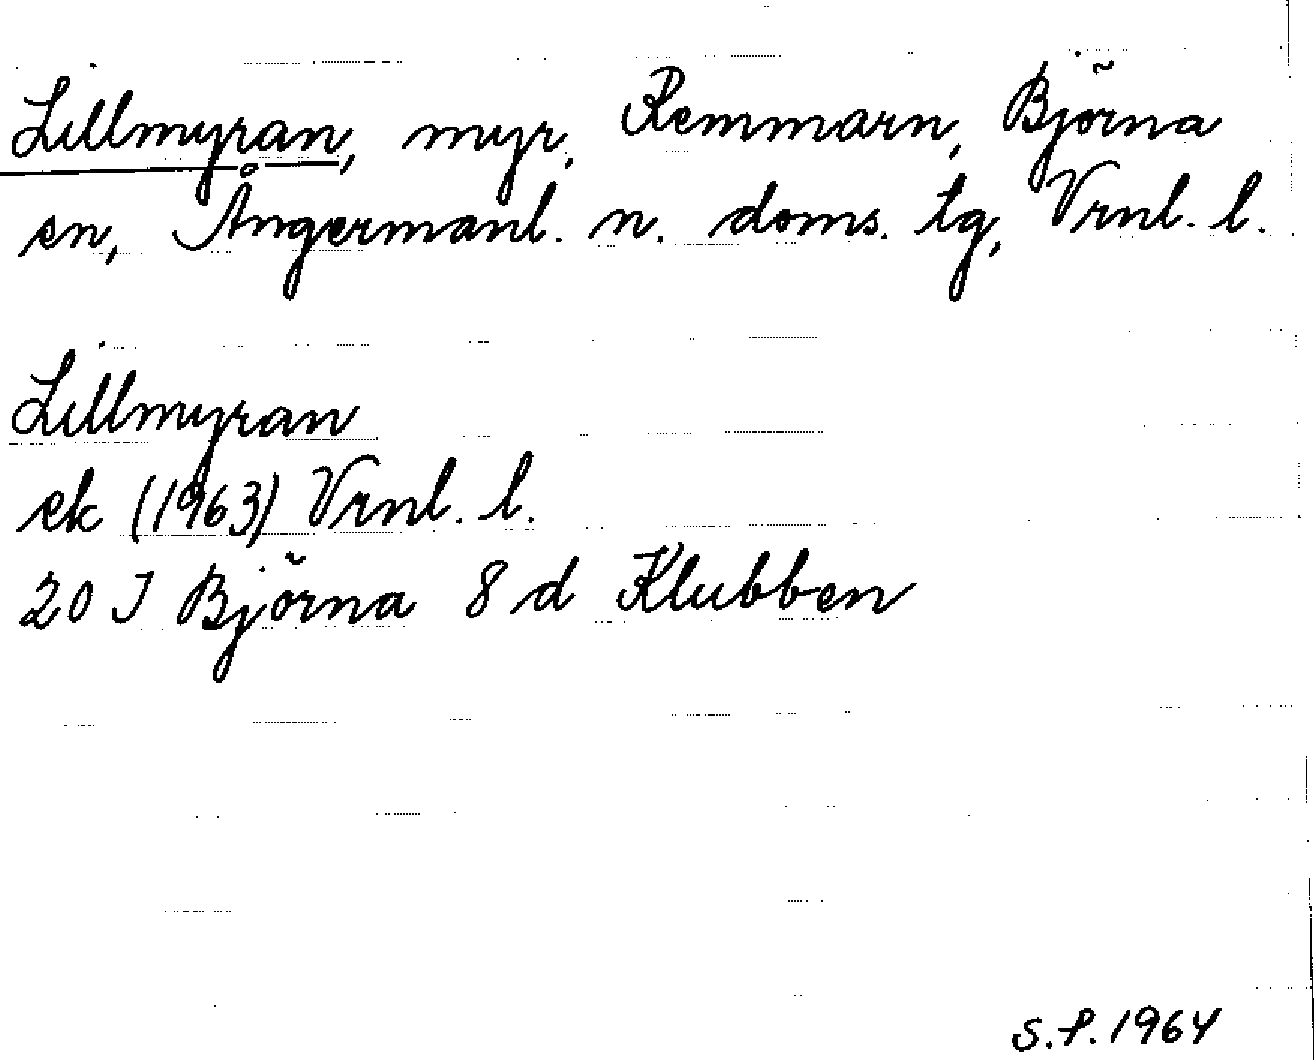 Lillmyran, myr, Remmarn, Björna
sn, Ångermanl. n. doms. tg, Vrnl. l.
Lillmyran
ek (1963) Vrnl. l.
20 I Björna 8 d Klubben
S.P. 1964